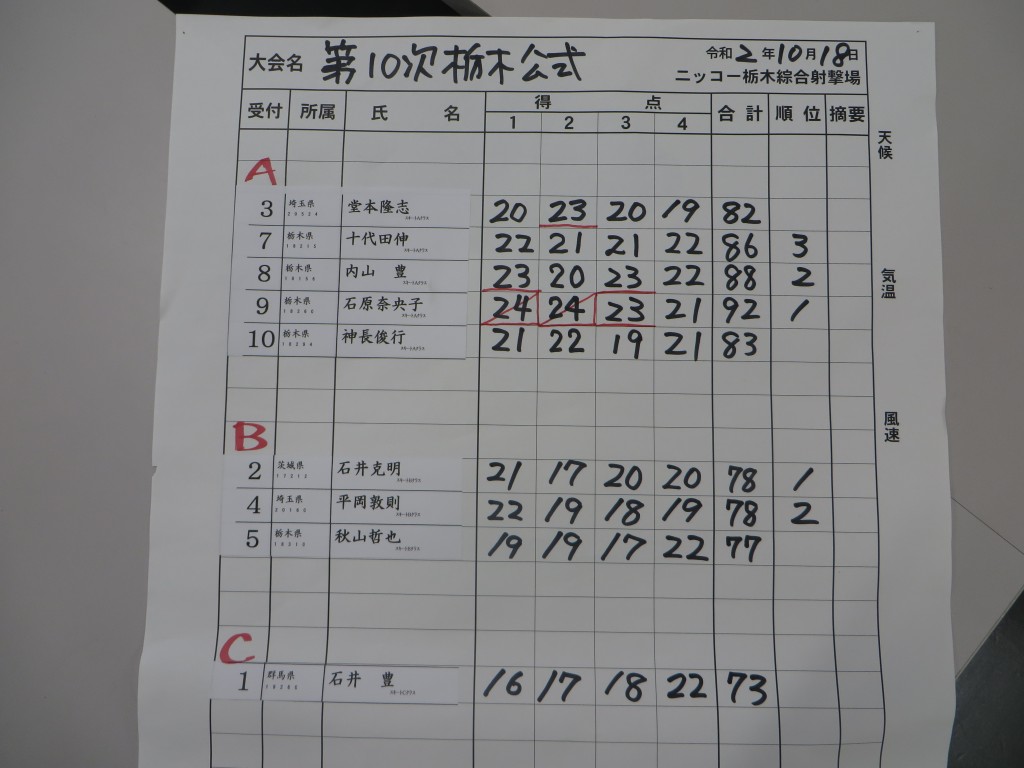 大会名 第10次栃木公式 令和2年10月18日
ニッコー栃木綜合射撃場
受付 所属 氏 名 得 点 合計 順位 摘要
1 2 3 4
天候
A
3 埼玉県 堂本隆志 20 23 20 19 82
7 栃木県 十代田伸 22 21 21 22 86 3
8 栃木県 内山 豊 23 20 23 22 88 2
気温
9 栃木県 石原奈央子 24 24 23 21 92 1
10 栃木県 神長俊行 21 22 19 21 83
風速
B
2 茨城県 石井克明 21 17 20 20 78 1
4 埼玉県 平岡敦則 22 19 18 19 78 2
5 栃木県 秋山哲也 19 19 17 22 77
C
1 群馬県 石井 豊 16 17 18 22 73